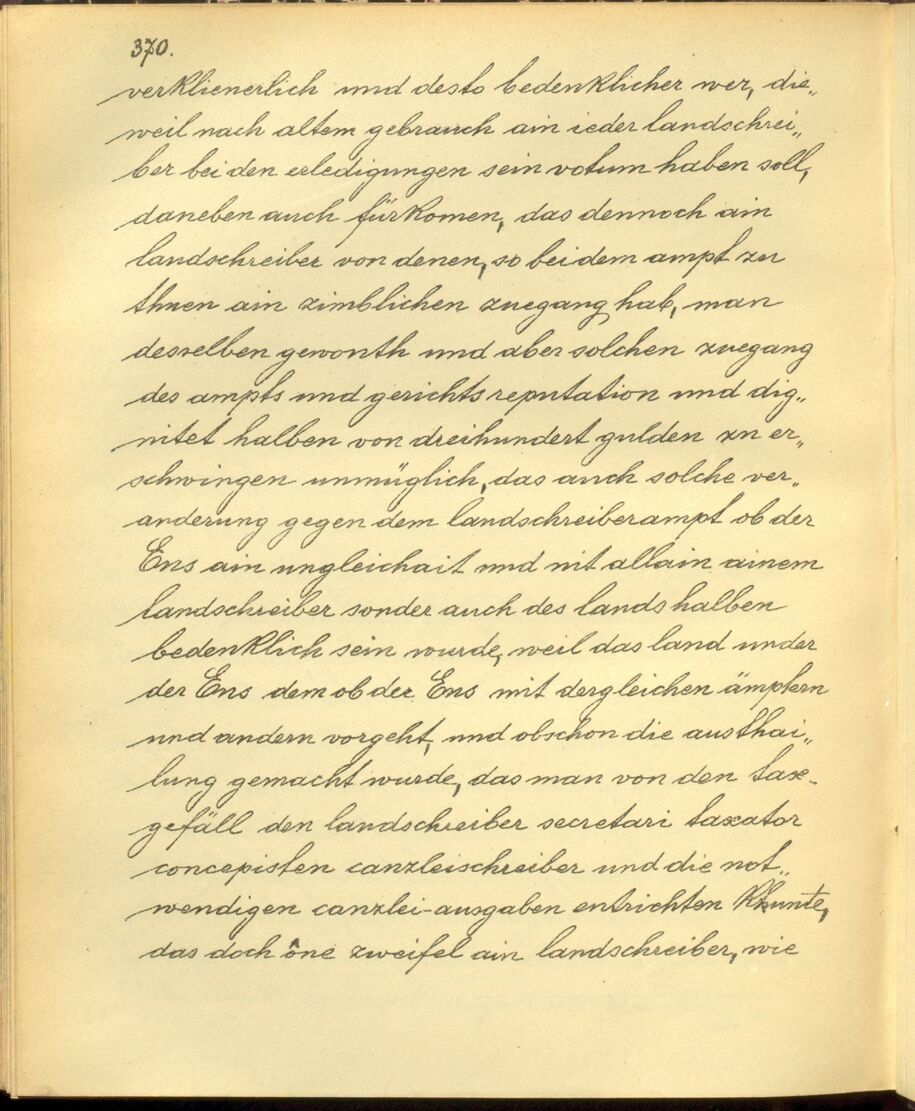 370.
verklienerlich und desto bedenklicher wer, die„
weil nach altem gebrauch ain ieder landschrei„
ber bei den erledigungen sein votum haben soll,
daneben auch fürkomen, das dennoch ain
landschreiber von denen, so bei dem ampt zu
thuen ain zimblichen zuegang hab, man
desselben gewonth und aber solchen zuegang
des ampts und gerichts reputation und dig„
nitet halben von dreihundert gulden zu er„
schwingen unmüglich, das auch solche ver„
anderung gegen dem landschreiberampt ob der
Ens ain ungleichait und nit allain ainem
landschreiber sonder auch des lands halben
bedenklich sein wurde, weil das land under
der Ens dem ob der Ens mit dergleichen ämptern
und andern vorgeht, und obschon die austhai„
lung gemacht wurde, das man von den tax-
gefäll den landschreiber secretari taxator
concepisten canzleischreiber und die not„
wendigen canzlei-ausgaben entrichten khunte,
das doch öne zweifel ain landschreiber, wie